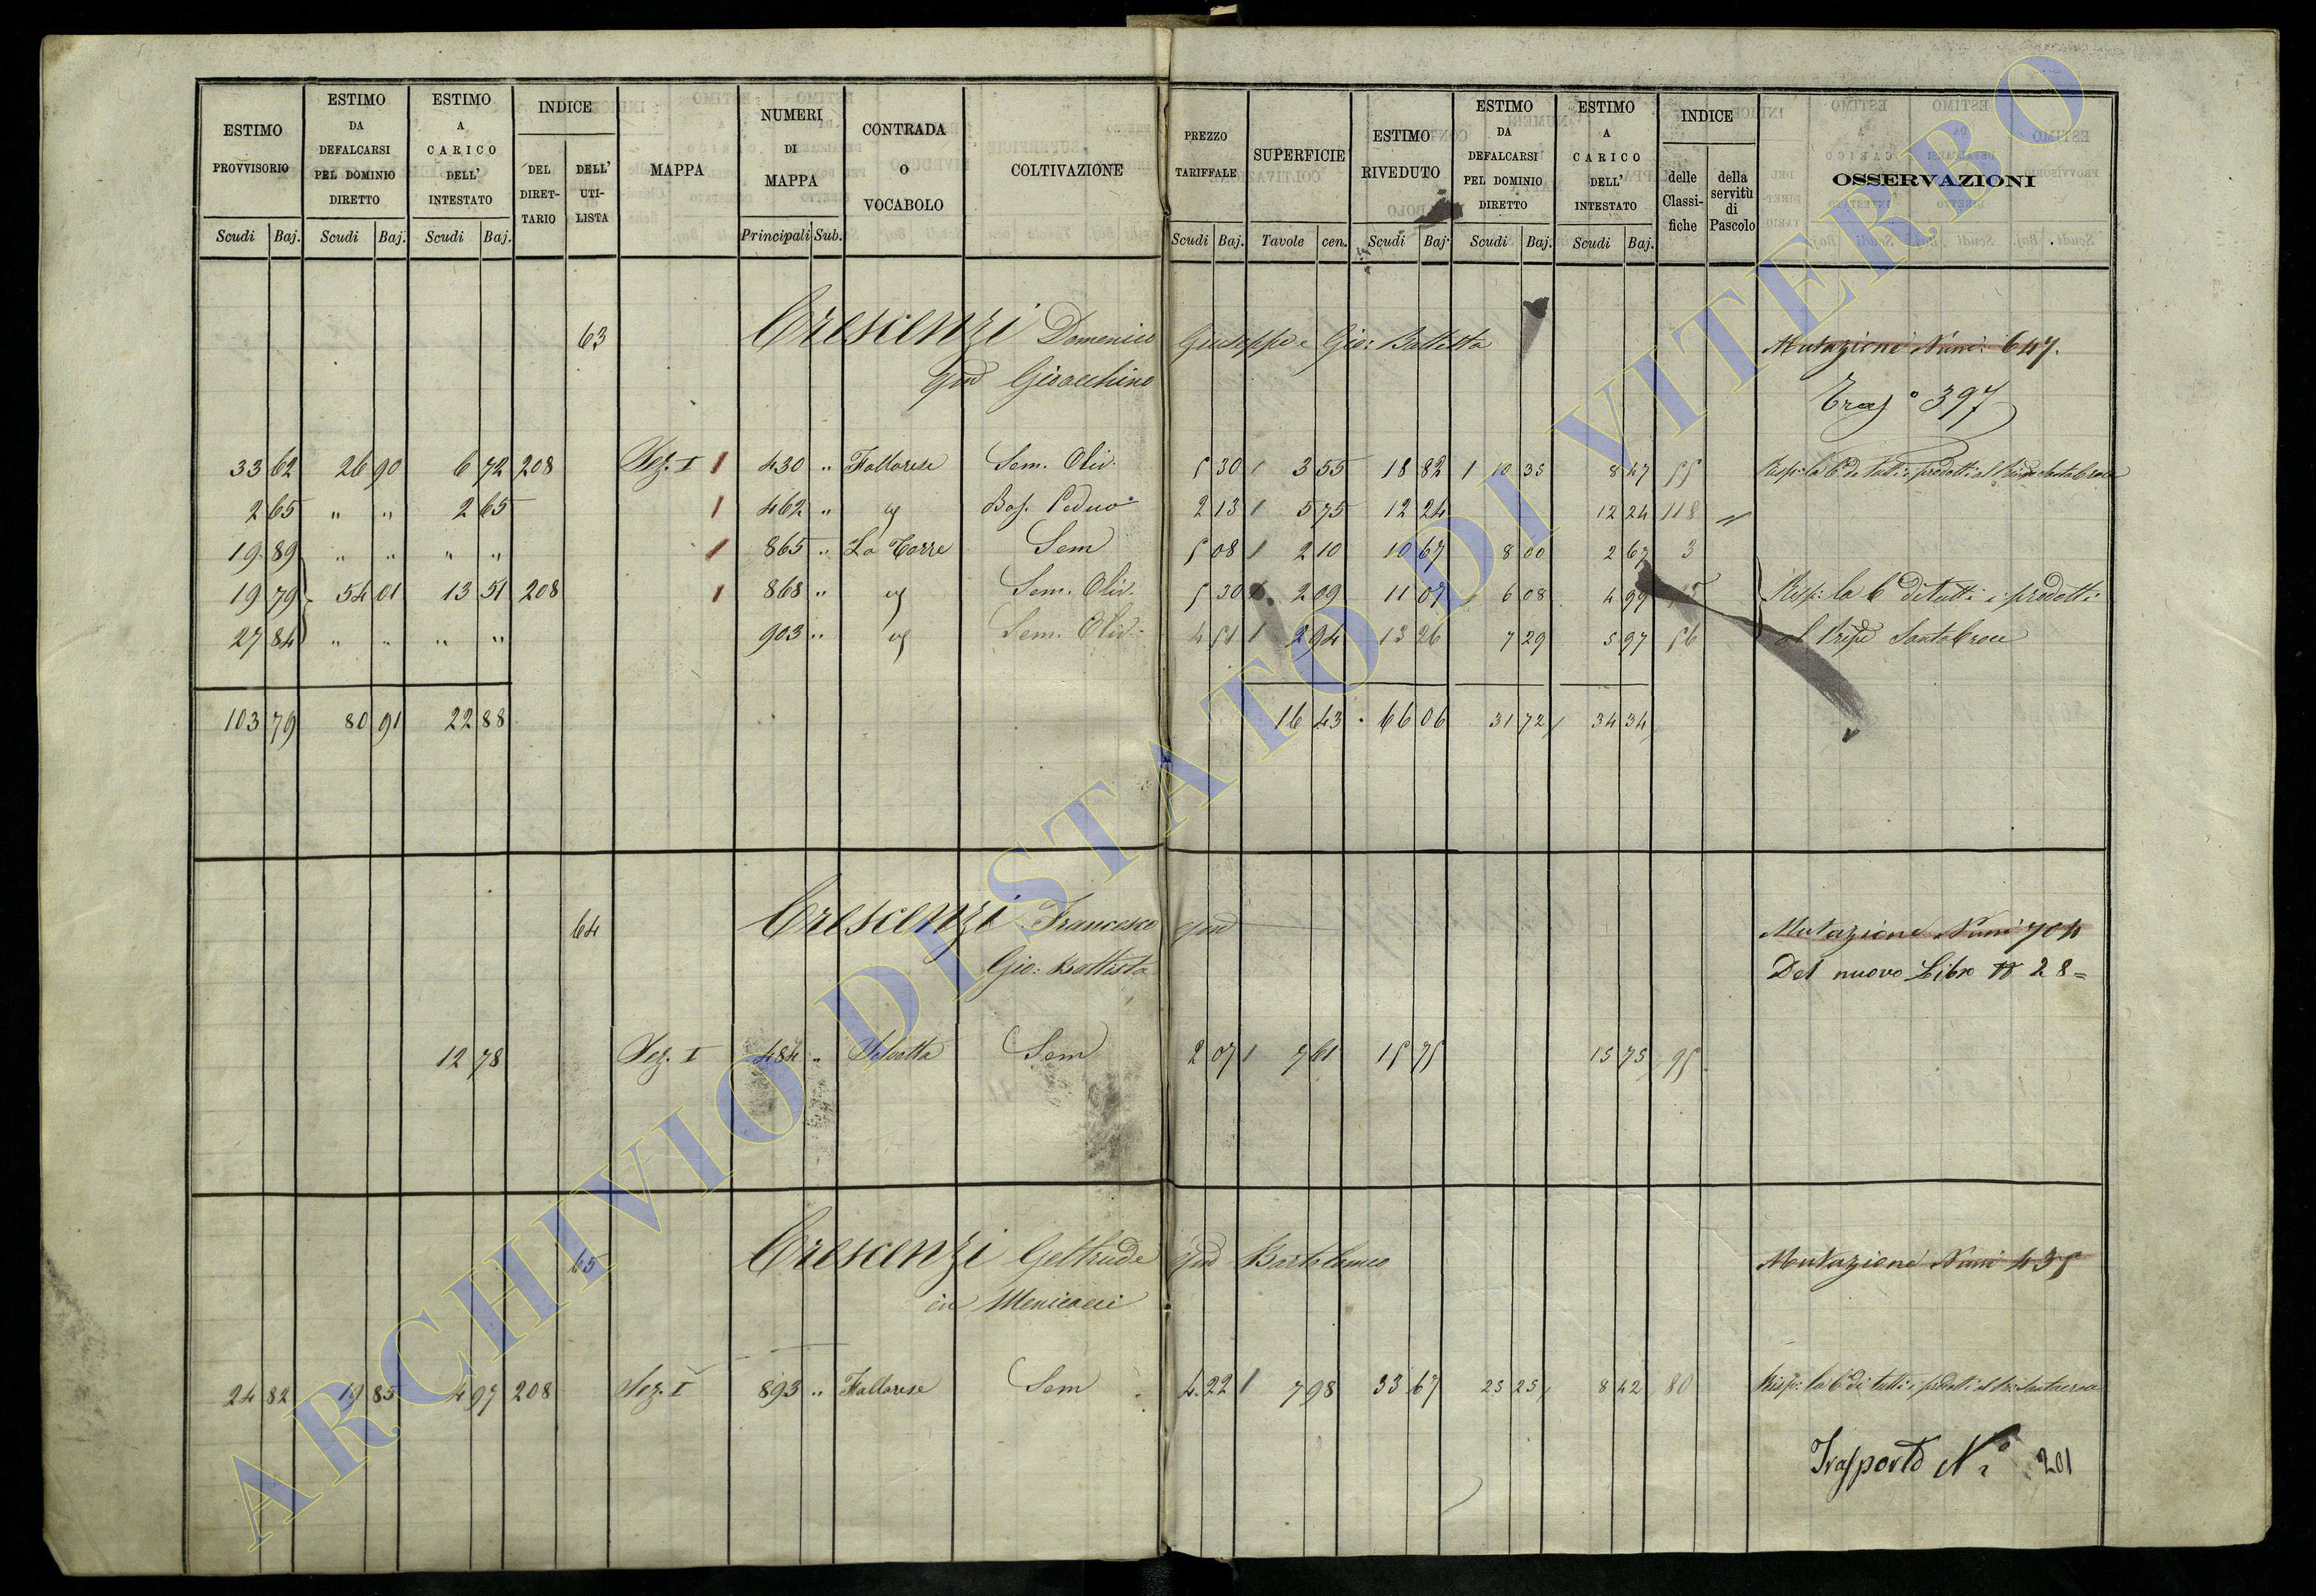 ESTIMO PROVVISORIO Scudi Baj.
ESTIMO DA DEFALCARSI PEL DOMINIO DIRETTO Scudi Baj.
ESTIMO A CARICO DELL' INTESTATO Scudi Baj.
INDICE DEL DIRET-TARIO DELL' UTI-LISTA
MAPPA
NUMERI DI MAPPA Principali Sub.
CONTRADA O VOCABOLO
COLTIVAZIONE
PREZZO TARIFFALE Scudi Baj.
SUPERFICIE Tavole cen.
ESTIMO RIVEDUTO Scudi Baj.
ESTIMO DA DEFALCARSI PEL DOMINIO DIRETTO Scudi Baj.
ESTIMO A CARICO DELL' INTESTATO Scudi Baj.
INDICE delle Classi-fiche della servitù di Pascolo
OSSERVAZIONI
63 Crescenzi Domenico Giuseppe e Gio: Battista Mutazione Num: 647.
qud Gioacchino
Trasp 397
33 62 26 90 6 72 208 Sez. I 430 " Fallarese Sem. Oliv. 5 30 3 55 18 82 10 35 8 47 55 Risp: la 6a di tutti i prodotti al
2 65 " " 2 65 462 " Bos. Ceduo 2 13 5 75 12 24 12 24 118 "
19 89 " " " " 865 " La Torre Sem 5 08 2 10 10 67 8 00 2 67 3
19 79 54 01 13 51 208 868 " Sem. Oliv. 5 30 2 09 11 07 6 08 4 99 Risp: la 6a di tutti i prodotti
27 84 " " " " 903 " Sem. Oliv. 4 51 2 94 13 26 7 29 5 97 56 al Santa Croce
103 79 80 91 22 88 16 43 66 06 31 72 34 34
64 Crescenzi Francesco qud Mutazione Num 704
Gio: Battista Del nuovo Libro N 28=
12 78 Sez. I 484 " Selvotta Sem 2 07 7 61 15 75 15 75 95
65 Crescenzi Geltrude qud Bartolomeo Mutazione Num 435
in Menicacci
24 82 19 85 4 97 208 Sez. I 893 " Fallarese Sem 4 22 7 98 33 67 25 25 8 42 80 Risp: la 6a di tutti i prodotti al
Trasporto No 201
ARCHIVIO DI STATO DI VITERBO